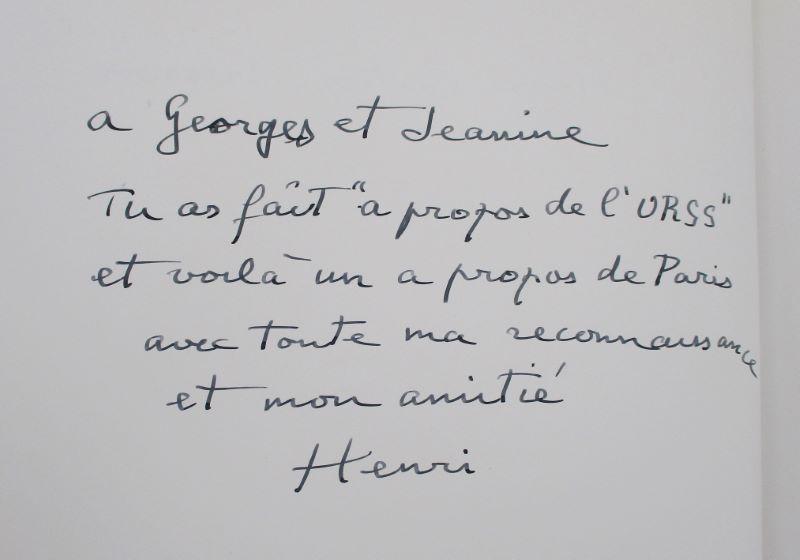 a Georges et Jeanine
Tu as faît "a propos de l'URSS"
et voilà un a propos de Paris
avec toute ma reconnaissance
et mon amitié
Henri